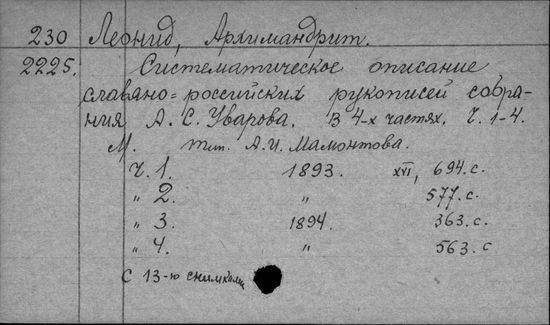 230 Леонид, Архимандрит.
2225. Систематическое описание
славяно=российских рукописей собра-
ния А. С. Уварова. В 4-х частях. Ч. 1-4.
М. тип. А. И. Мамонтова.
Ч. 1. 1893. XVI, 694. с.
„ 2. „ 577. с.
„ 3. 1894. 363. с.
„ 4. „ 563. с
С 13-ю снимками